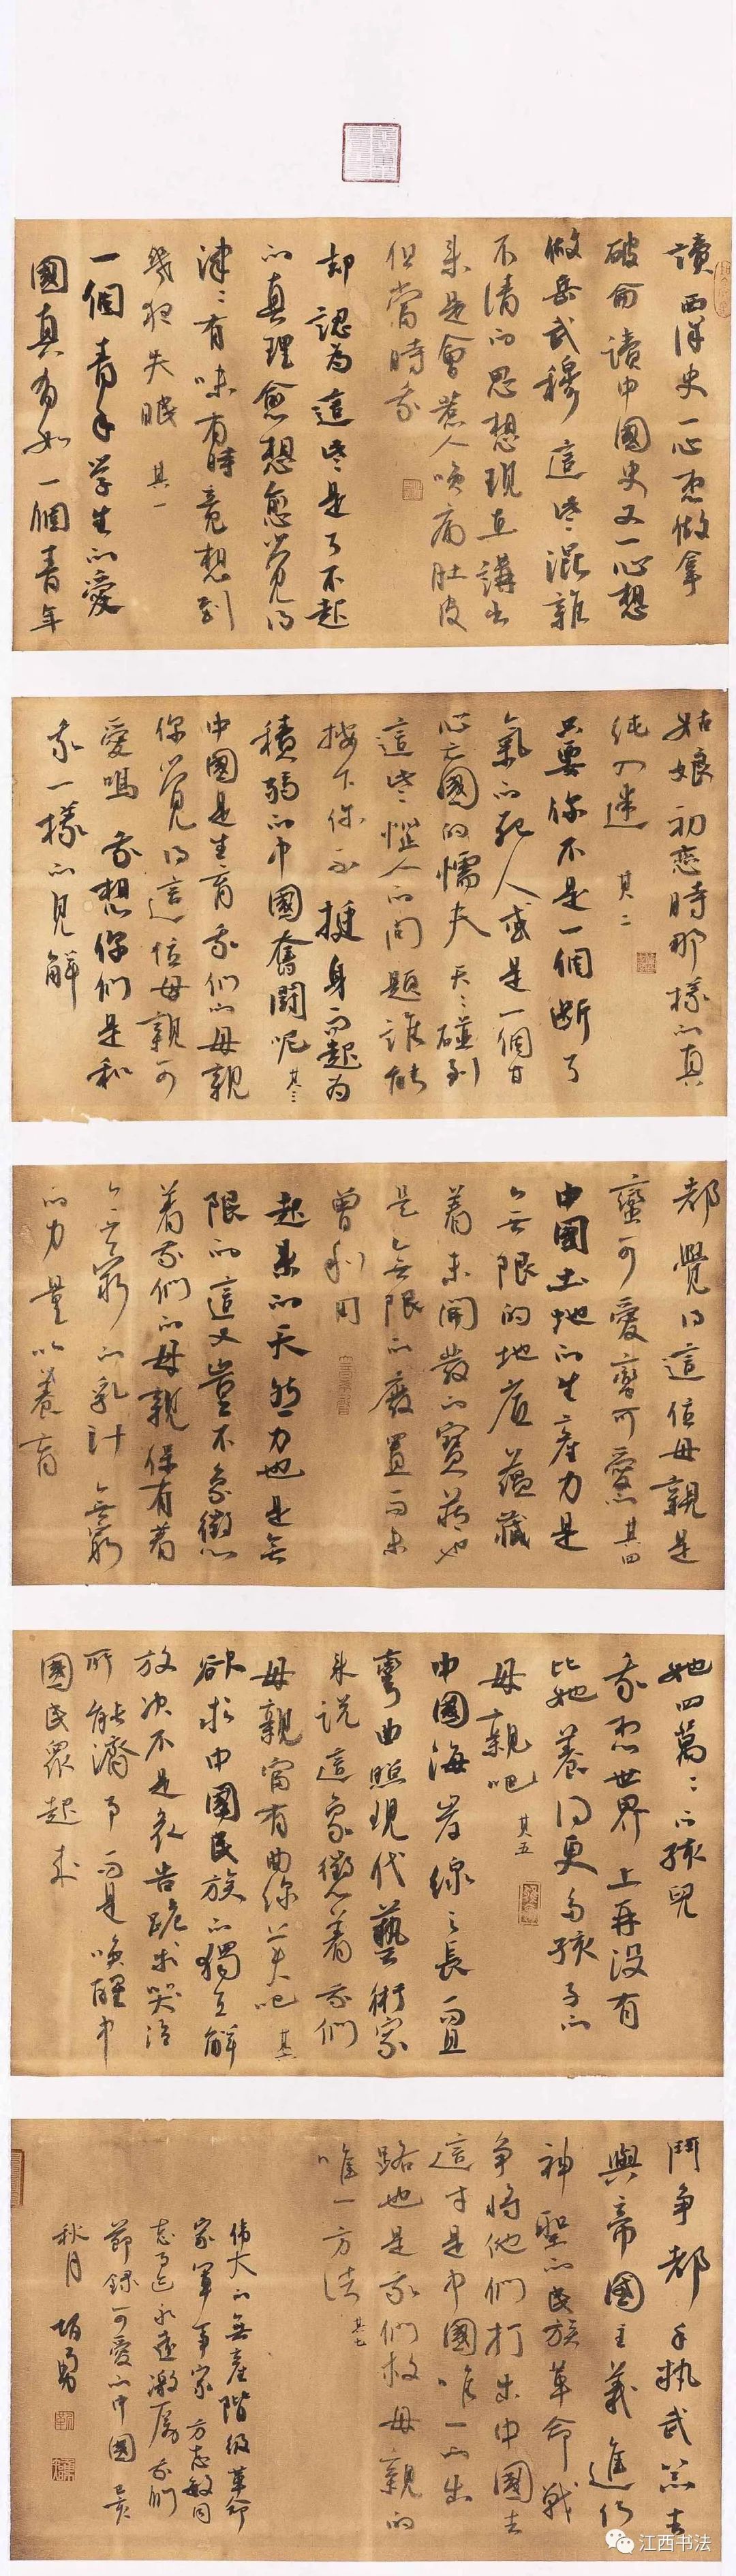 讀西洋史一心想做拿
破侖讀中國史又一心想
做岳武穆這些混雜
不清的思想現在講出
來是會惹人笑痛肚皮
但當時我
却認為這些是了不起
的真理愈想愈覺得
津津有味有時竟想到
幾夜失眠 其一
一個青年學生的愛
國真有如一個青年
姑娘初戀時那樣的真
純入迷 其二
只要你不是一個斷了
氣的死人或是一個甘
心亡國的懦夫天天碰到
這些惱人的問題誰能
按下你不挺身而起為
積弱的中國奮鬪呢 其三
中國是生育我們的母親
你覺得這位母親可
愛嗎我想你們是和
我一樣的見解
都覺得這位母親是
蠻可愛蠻可愛的 其四
中國土地的生產力是
無限的地底蘊藏
着未開發的寶藏也
是無限的廢置而未
曾利用
起來的天然力也是無
限的這又豈不象徵
着我們的母親保有着
無窮的乳汁無窮
的力量以養育
她四萬萬的孩兒
我想世界上再沒有
比她養得更多孩子的
母親吧 其五
中國海岸線之長而且
彎曲照現代藝術家
來説這象徵着我們
母親富有曲線美吧 其六
欲求中國民族的獨立解
放决不是哀告跪求哭泣
所能濟事而是唤醒中
國民眾起來
鬥争都手執武器去
與帝國主義進行
神聖的民族革命戰
争將他們打出中國去
這才是中國唯一的出
路也是我們救母親的
唯一方法 其七
偉大的無産階級革命
家軍事家方志敏同
志
節録可愛的中國 己亥
秋月
江西书法